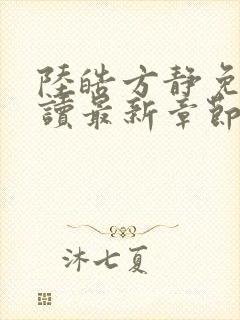 陸皓方靜免
讀最新章節
沐七夏